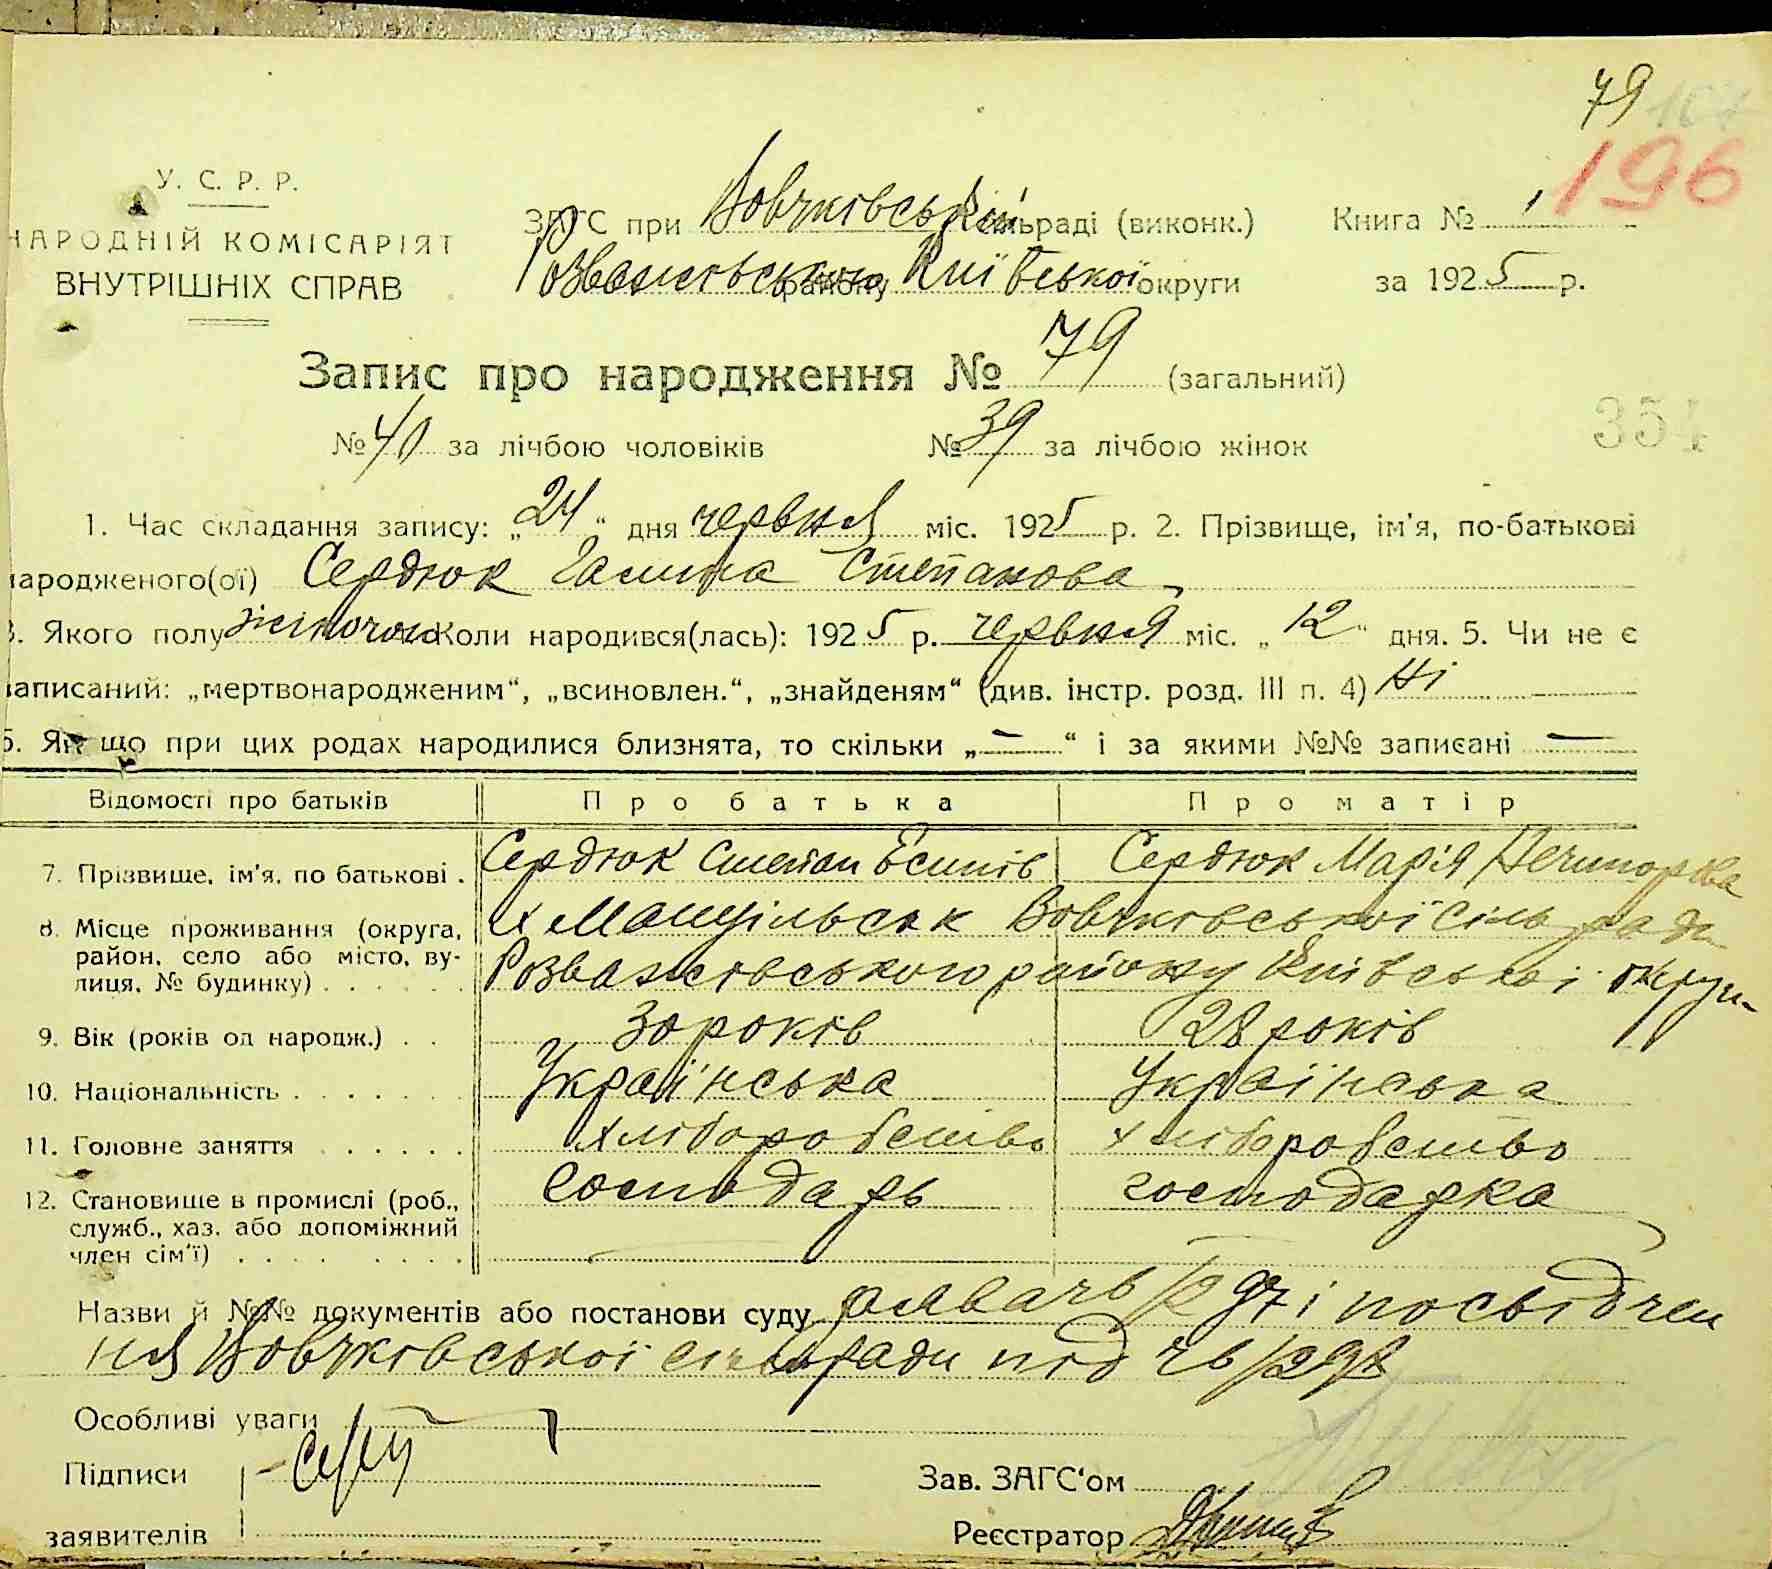 79 167
196
У. С. Р. Р.
НАРОДНІЙ КОМІСАРІЯТ
ВНУТРІШНІХ СПРАВ
ЗАГС при Вовчківській сільраді (виконк.)
Розважівського району Київської округи
Книга № 1
за 1925 р.
Запис про народження № 79 (загальний)
№ 40 за лічбою чоловіків № 39 за лічбою жінок
354
1. Час складання запису: „24“ дня червня міс. 1925 р. 2. Прізвище, ім'я, по-батькові
народженого(ої) Сердюк Галина Степанова
3. Якого полу жіночого Коли народився(лась): 1925 р. червня міс. „12“ дня. 5. Чи не є
записаний: „мертвонародженим“, „всиновлен.“, „знайденям“ (див. інстр. розд. III п. 4) Ні
6. Як що при цих родах народилися близнята, то скільки „—“ і за якими №№ записані —
Відомості про батьків Про батька Про матір
7. Прізвище, ім'я, по батькові . Сердюк Степан Есипів Сердюк Марія Нечипорова
8. Місце проживання (округа, район, село або місто, вулиця, № будинку) . . . . . .
х Вовчківської сільради
Розважівського району Київської округи
9. Вік (років од народж.) . . 30 років 28 років
10. Національність . . . . . . . Українська Українська
11. Головне заняття . . . . . . хліборобство хліборобство
12. Становище в промислі (роб., господарь господарка
служб., хаз. або допоміжний
член сім'ї) . . . . . . . .
Назви й №№ документів або постанови суду заява чь/297 і посвідчен
ня Вовчківської сільради під чь/297
Особливі уваги
Підписи
заявителів
Зав. ЗАГС'ом
Реєстратор